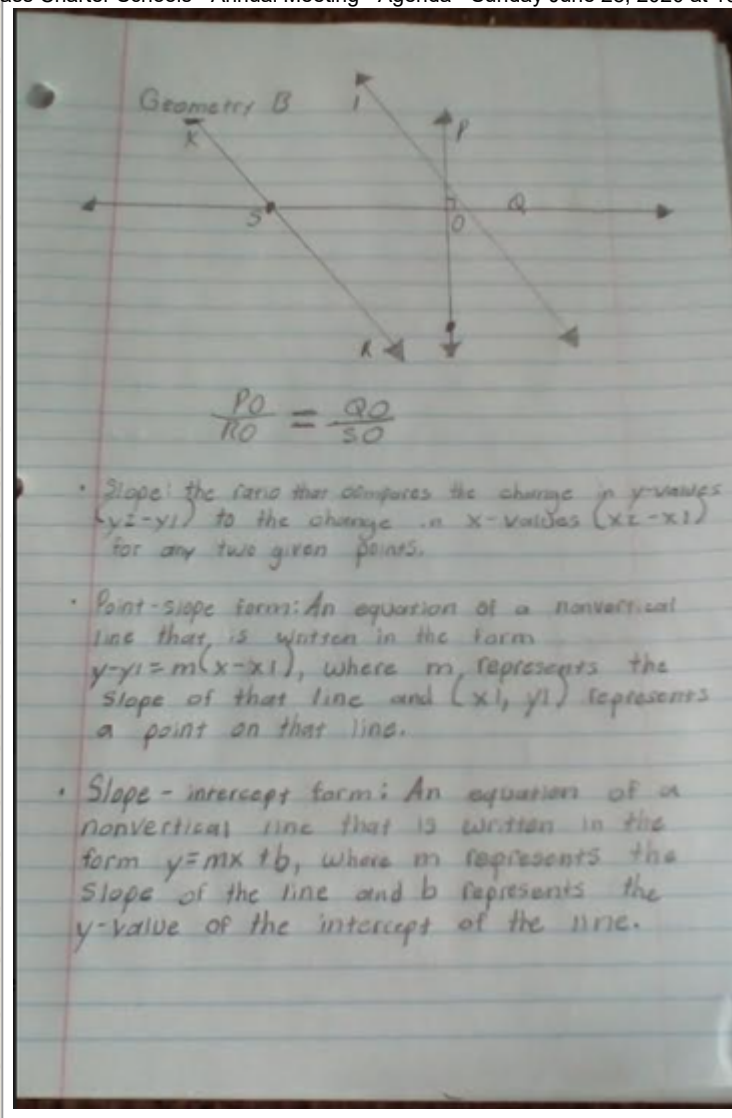 Charter Schools - Annual Meeting - Agenda - Sunday June 28, 2020 at
Geometry B
K
l
P
S
O
Q
R
PO/RO = QO/SO
• Slope: the ratio that compares the change in y-values
(y2-y1) to the change in x-values (x2-x1)
for any two given points.
• Point-slope form: An equation of a nonvertical
line that is written in the form
y-y1=m(x-x1), where m represents the
slope of that line and (x1, y1) represents
a point on that line.
• Slope-intercept form: An equation of a
nonvertical line that is written in the
form y=mx+b, where m represents the
slope of the line and b represents the
y-value of the intercept of the line.